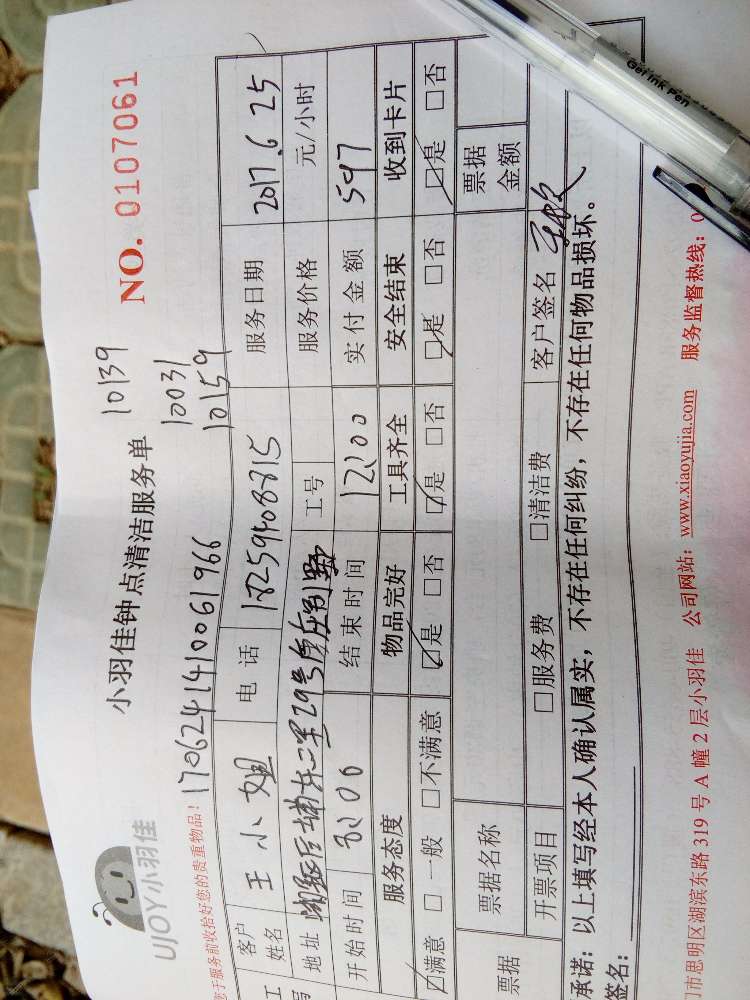 UJOY小羽佳
小羽佳钟点清洁服务单
NO. 0107061
10139
10031
10159
您于服务前收拾好您的贵重物品!
1706241410061966
客户姓名 王小姐 电话 18259408815 服务日期 2017.6.25
地址 29号 工号 服务价格 元/小时
开始时间 8:00 结束时间 12:00 实付金额 597
服务态度 物品完好 工具齐全 安全结束 收到卡片
☑满意 □一般 □不满意 ☑是 □否 ☑是 □否 ☑是 □否 ☑是 □否
票据 票据名称 票据金额
开票项目 □服务费 □清洁费 客户签名
承诺:以上填写经本人确认属实,不存在任何纠纷,不存在任何物品损坏。
签名:
市思明区湖滨东路319号A幢2层小羽佳 公司网站:www.xiaoyujia.com 服务监督热线:0
Gel Ink Pen